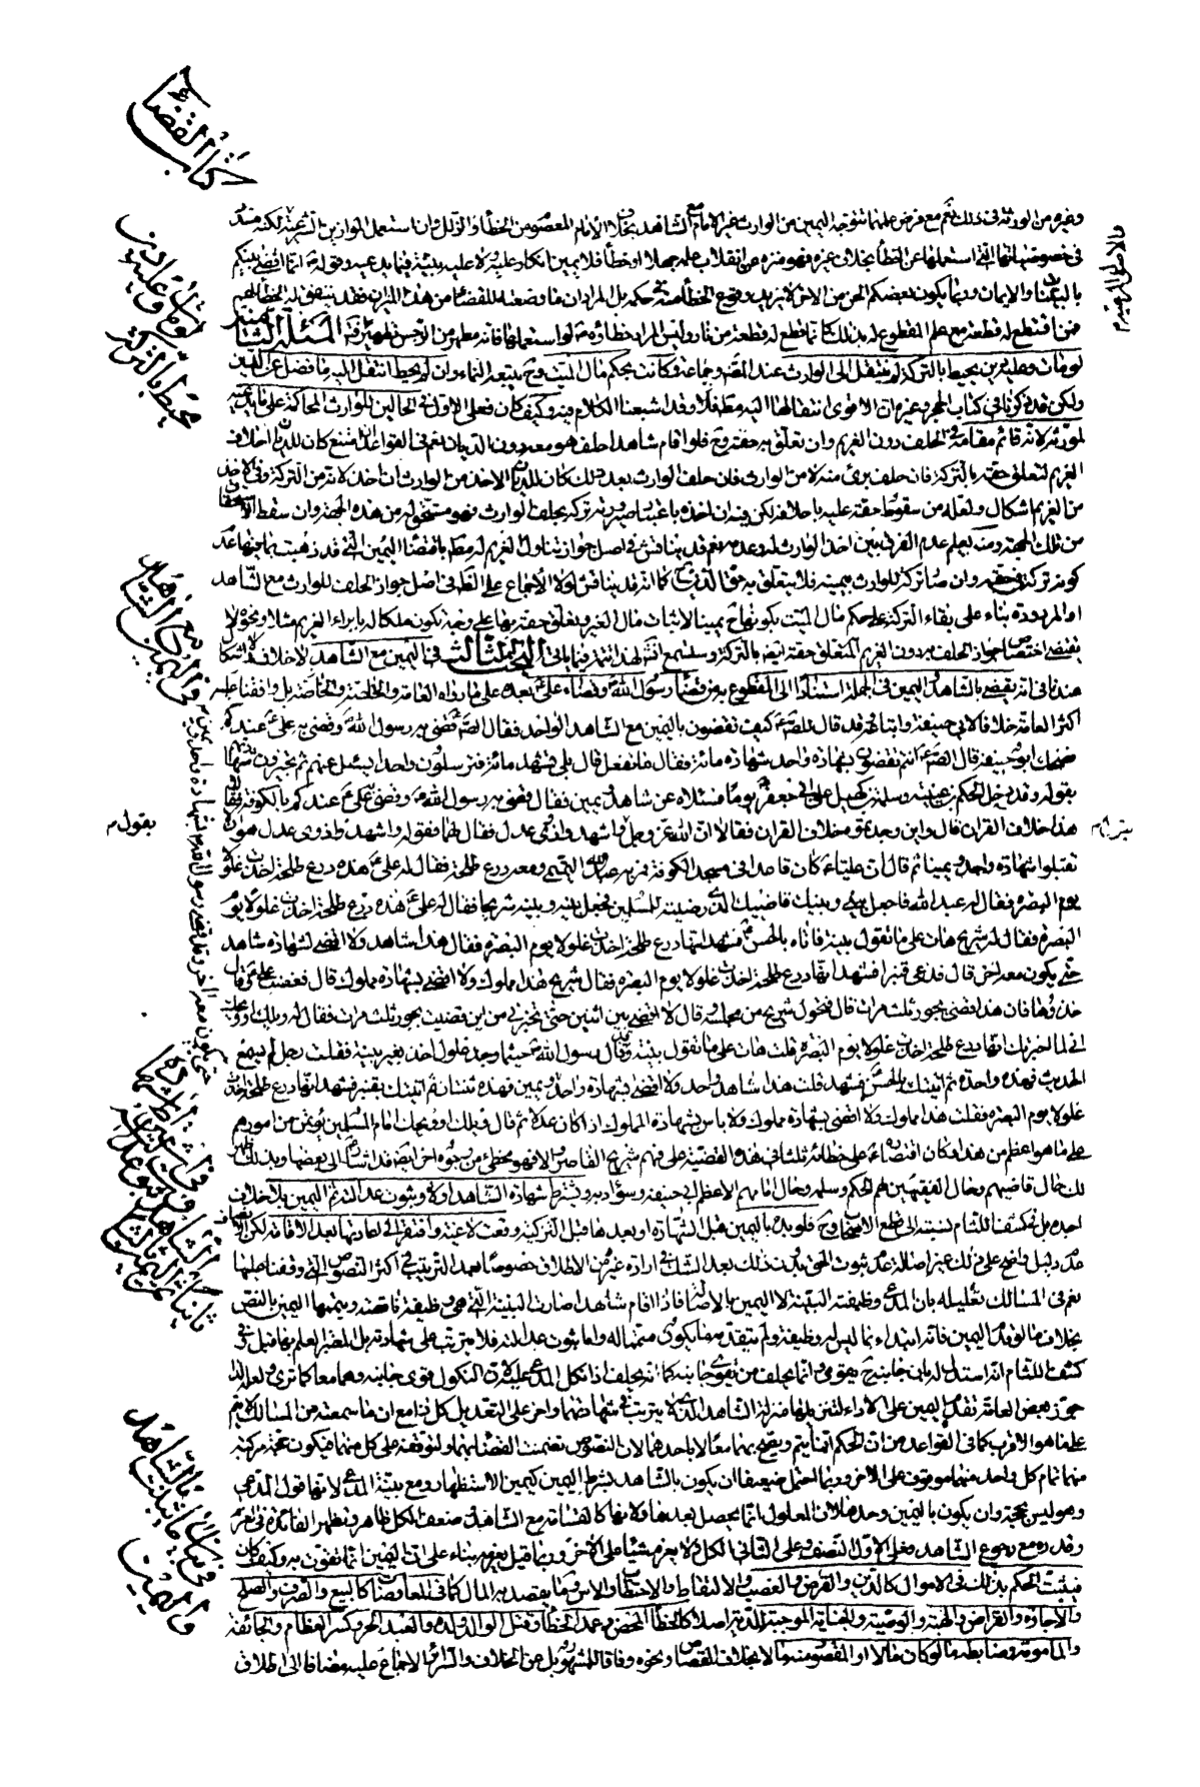 كتاب القضاء
وغيره من الورثة في ذلك نعم مع فرض علمهما تتوجه اليمين من الوارث غير الامام مع الشاهد بخلاف الأمام المعصوم من الخطأ والزلل وان استعمل الموازين الشرعية لكنه
في خصوصياتها التي استعملها عن الخطأ بخلاف غيره فهو منزه عن انقلاب علمه جهلا او خطأ فلا يمين انكار عليه ولا عليه بينة فيما يدعيه وقوله ص انما اقضي بينكم
بالبينات والايمان وربما يكون بعضكم الحن من الاخر لا يريد وقوع الخطأ منه في حكمه بل المراد ان ما وضعته للقضاء من هذا الميزان قد يتفق له الخطأ
فمن اقتطع له قطعة مع علم المقطوع له بذلك كانما قطع له قطعة من نار وليس المراد خطاؤه ص لو استعملها فانه مطهر من الرجس المسئلة الثانية
لو مات وعليه دين يحيط بالتركة لم ينتقل الى الوارث عند المصنف وجماعة وكانت بحكم مال الميت وح يتبعه النماء وان لم يحيط انتقل اليه ما فضل عن الدين
ولكن قد ذكرنا في كتاب الحجر وغيره ان الاقوى انتقالها اليه مطلقا وقد اشبعنا الكلام فيه وكيف كان فعلى الاول في الحالين للوارث المحاكمة على ما يدعيه
لمورثه لانه قائم مقامه في الحلف دون الغريم وان تعلق به حقه وح فلو اقام شاهدا حلف هو معه دون الديان نعم في القواعد ان امتنع كان للديان احلاف
الغريم لتعلق حقه بالتركة فان حلف برئ منه لا من الوارث فان حلف الوارث بعد ذلك كان للديان الاخذ من الوارث ان اخذ لانه من التركة وفي الاخذ
من الغريم اشكال ولعله من سقوط حقه عليه باحلافه لكن فيه ان اخذه باعتبار صيرورته تركة بحلف الوارث فهو مستحق له من هذه الجهة وان سقط
من تلك الجهة ومنه يعلم عدم الفرق بين اخذ الوارث له وعدمه نعم قد يناقش في اصل جواز تناول الغريم له مطلقا باقتضاء اليمين التي قد ذهبت بما فيها عدم
كونه تركة في حقه وان صار تركة للوارث بيمينه فلا يتعلق به حق الديان ح كما انه قد يناقش لولا الأجماع على الظاهر في اصل جواز الحلف للوارث مع الشاهد
او المردودة بناء على بقاء التركة على حكم مال الميت بكونها ح يمينا لاثبات مال الغير وتعلق حقه بها على وجه يكون ملكا له بابراء الغريم مثلا ونحوه لا
يقتضي اختصاص جواز الحلف به دون الغريم المتعلق حقه ايضا بالتركة وستسمع انشاء الله لهذا تتمة فيما ياتي البحث الثالث في اليمين مع الشاهد لا خلاف
عندنا في انه يقضي بالشاهد واليمين في الجملة استنادا الى المقطوع به من قضاء رسول الله ص وقضاء علي ع بعده على ما رواه العامة والخاصة بل وافقنا عليه
اكثر العامة خلافا لابي حنيفة واتباعه قد قال للصادق ع كيف تقضون باليمين مع الشاهد الواحد فقال الصادق ع قضى به رسول الله ص وقضى به علي ع عندكم
فضحك ابو حنيفة فقال الصادق ع انتم تقضون بشهادة واحد شهادة مائة فقال ما نفعل قال بلى يشهد مائة فترسلون واحدا يسئل عنهم ثم تجيزون شهادتهم
بقوله وقد دخل الحكم بن عتيبة وسلمة بن كهيل على ابي جعفر ع يوما فسئلاه عن شاهد ويمين فقال قضى به رسول الله ص وقضى به علي ع عندكم بالكوفة فقالا
هذا خلاف القران قال واين وجدتموه خلاف القران فقالا ان الله عز وجل يقول واشهدوا ذوي عدل فقال لهما فقوله واشهدوا ذوى عدل هو ان لا
تقبلوا شهادة واحد ويمينا ثم قال ان عليا ع كان قاعدا في مسجد الكوفة فمر به عبد الله التميمي ومعه درع طلحة فقال له علي ع هذه درع طلحة اخذت غلولا
يوم البصرة فقال له عبد الله فاجعل بيني وبينك قاضيك الذي رضيته للمسلمين فجعل بينه وبينه شريحا فقال له علي ع هذه درع طلحة اخذت غلولا يوم
البصرة فقال له شريح هات على ما تقول بينة فاتاه بالحسن ع فشهد انها درع طلحة اخذت غلولا يوم البصرة فقال هذا شاهد ولا اقضي بشهادة شاهد
حتى يكون معه اخر قال فدعى قنبرا فشهد انها درع طلحة اخذت غلولا يوم البصرة فقال شريح هذا مملوك ولا اقضي بشهادة مملوك قال فغضب علي ع وقال
خذوها فان هذا قضى بجور ثلث مرات قال فتحول شريح من مجلسه وقال لا اقضي بين اثنين حتى تخبرني من اين قضيت بجور ثلث مرات فقال له ويلك او ويحك
اني لما اخبرتك انها درع طلحة اخذت غلولا يوم البصرة قلت هات على ما تقول بينة وقد قال رسول الله ص حيثما وجد غلول اخذ بغير بينة فقلت رجل لم يسمع
الحديث فهذه واحدة ثم اتيتك بالحسن فشهد قلت هذا شاهد واحد ولا اقضي بشهادة واحد ويمين فهذه ثنتان ثم اتيتك بقنبر فشهد انها درع طلحة اخذت
غلولا يوم البصرة فقلت هذا مملوك ولا اقضي بشهادة مملوك ولا باس بشهادة المملوك اذا كان عدلا ثم قال ويلك او ويحك امام المسلمين يؤمن من امورهم
على ما هو اعظم من هذا وكان اقتصاره ع على خطائه ثلثا في هذه القضية على فهم شريح القاصر والا فهو مخطئ من وجوه اخر ايضا قد اشار الى بعضها وبذلك ظهر
لك حال قاضيهم وحال الفقيهين لهم الحكم وسلمة وحال امامهم الاعظم ابي حنيفة وسؤاله ويشترط شهادة الشاهد اولا وثبوت عدالته ثم اليمين بلا خلاف
اجده بل في كشف اللثام نسبته الى قطع الاصحاب وح فلو بدء باليمين قبل الشهادة او بعدها قبل التزكية وقعت لاغية وافتقر الى اعادتها بعد الاقامة لكن
عدم دليل واضح على ذلك غير اصالة عدم ثبوت الحق بدون ذلك بعد الشك في ارادة غيره من الاطلاق خصوصا بعد الترتيب في اكثر النصوص التي وقفنا عليها
نعم في المسالك تعليله بان المدعى وظيفته البينة لا اليمين بالاصالة فاذا اقام شاهدا صارت البينة التي هي وظيفته ناقصة ويتمها اليمين بالنص
بخلاف ما لو قدم اليمين فانه ابتداء بما ليس له وظيفة ولم يتقدمه ما يكون متمما له واما ثبوت عدالته فلا يترتب على شهادته بل المعتبر العلم بها قبل
كشف اللثام انه استدل له بان جانبه ح يقوى وانما يحلف من يقوى جانبه كما انه يحلف اذا نكل المدعى عليه لان النكول قوى جانبه وهما معا كما ترى ولعله لذا
جوز بعض العامة تقديم اليمين على الاداء لتنزيلها منزلة الشاهد الذي لا يترتب في شهادتهما واخر على التعديل كل ذا مع ان ما سمعته من المسالك لا يتم
على ما هو الاقرب كما في القواعد من ان الحكم انما يتم ويقضي بهما معا لا باحدهما لان النصوص تضمنت القضاء بهما ولتوقفه على كل منهما فيكون حجة مركبة
منهما تمام كل واحد منهما موقوف على الاخر وربما احتمل ضعيفا ان يكون بالشاهد بشرط اليمين كيمين الاستظهار ومع بينة المدعى لانها قول المدعي
وهو ليس بحجة وان يكون باليمين وحدها لان المعلول انما يحصل بعدها ولانها كالقسامة مع الشاهد وضعف الكل ظاهر وتظهر الفائدة في غرم
وقدره مع رجوع الشاهد فعلى الاول النصف وعلى الثاني الكل ولا يغرم شيئا على الاخر وربما قيل بغرمه بناء على ان اليمين انما تقوت به وكيف كان
فيثبت الحكم بذلك في الاموال كالدين والقرض والغصب والالتقاط والاحتطاب والاسر وما يقصد به المال كما في المعاوضات كالبيع والصرف والصلح
والاجارة والقراض والهبة والوصية والجناية الموجبة للدية اصلا كالخطأ المحض وعمد الخطأ وقتل الوالد ولده والعبد الحر وكسر العظام والجائفة
والمامومة وضابطه ما لو كان مالا او المقصود منه مالا بخلاف القصاص ونحوه وفاقا للمشهور بل عن الخلاف والسرائر الاجماع عليه مضافا الى اطلاق
لو مات وعليه دين
محيط بالتركة
في اليمين مع الشاهد
بقول م
حتى يكون معه اخر قد قضى رسول الله ص بشهادة واحد ويمين